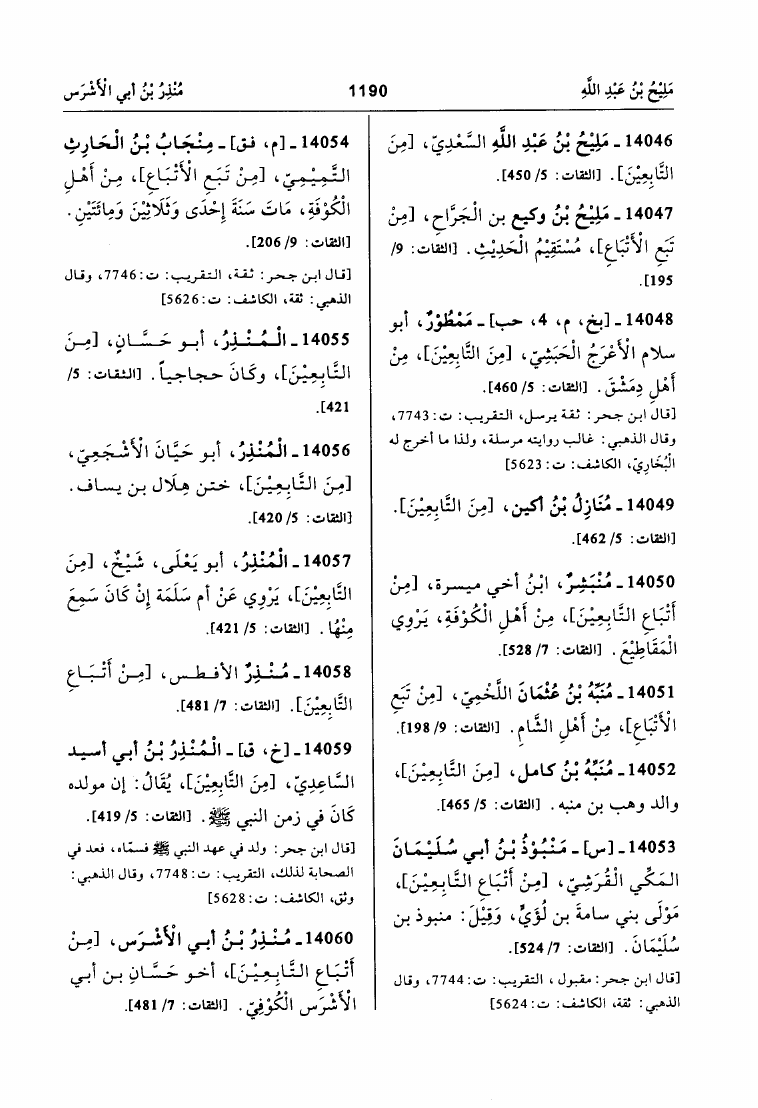 مَلِيْحُ بْنُ عَبْدِ اللَّهِ 1190 مُنْذِرُ بْنُ أبي الْأَشْرَس
14046 ـ مَلِيْحُ بْنُ عَبْدِ اللَّهِ السَّعْدِيّ، [مِنَ
التَّابِعِيْنَ]. [الثقات: 5/ 450].
14047 ـ مَلِيْحُ بْنُ وكيع بن الْجَرَّاحِ، [مِنْ
تَبَعِ الْأَتْبَاعِ]، مُسْتَقِيْمُ الْحَدِيْثِ. [الثقات: 9/
195].
14048 ـ [بخ، م، 4، حب] ـ مَمْطُوْرٌ، أبو
سلام الْأَعْرَجُ الْحَبَشِيّ، [مِنَ التَّابِعِيْنَ]، مِنْ
أَهْلِ دِمَشْقَ. [الثقات: 5/ 460].
[قال ابن حجر: ثقة يرسل، التقريب: ت: 7743،
وقال الذهبي: غالب روايته مرسلة، ولذا ما أخرج له
الْبُخَارِيّ، الكاشف: ت: 5623]
14049 ـ مُنَازِلُ بْنُ أكين، [مِنَ التَّابِعِيْنَ].
[الثقات: 5/ 462].
14050 ـ مُنْبَشِرٌ، ابْنُ أخي ميسرة، [مِنْ
أَتْبَاعِ التَّابِعِيْنَ]، مِنْ أَهْلِ الْكُوْفَةِ، يَرْوِي
الْمَقَاطِيْعَ. [الثقات: 7/ 528].
14051 ـ مُنَبِّهُ بْنُ عُثْمَانَ اللَّخْمِيّ، [مِنْ تَبَعِ
الْأَتْبَاعِ]، مِنْ أَهْلِ الشَّامِ. [الثقات: 9/ 198].
14052 ـ مُنَبِّهُ بْنُ كامل، [مِنَ التَّابِعِيْنَ]،
والد وهب بن منبه. [الثقات: 5/ 465].
14053 ـ [س] ـ مَنْبُوْذُ بْنُ أبي سُلَيْمَانَ
الْمَكّي الْقُرَشِيّ، [مِنْ أَتْبَاعِ التَّابِعِيْنَ]،
مَوْلَى بني سامةَ بن لُؤَيٍّ، وَقِيْلَ: منبوذ بن
سُلَيْمَانَ. [الثقات: 7/ 524].
[قال ابن حجر: مقبول، التقريب: ت: 7744، وقال
الذهبي: ثقة، الكاشف: ت: 5624]
14054 ـ [م، فق] ـ مِنْجَابُ بْنُ الْحَارِثِ
التَّمِيْمِيّ، [مِنْ تَبَعِ الْأَتْبَاعِ]، مِنْ أَهْلِ
الْكُوْفَةِ، مَاتَ سَنَةَ إِحْدَى وَثَلَاثِيْنَ وَمِائَتَيْنِ.
[الثقات: 9/ 206].
[قال ابن حجر: ثقة، التقريب: ت: 7746، وقال
الذهبي: ثقة، الكاشف: ت: 5626]
14055 ـ الْمُنْذِرُ، أبو حَسَّانٍ، [مِنَ
التَّابِعِيْنَ]، وكَانَ حجاجياً. [الثقات: 5/
421].
14056 ـ الْمُنْذِرُ، أبو حَيَّانَ الْأَشْجَعِيّ،
[مِنَ التَّابِعِيْنَ]، ختن هِلَال بن يساف.
[الثقات: 5/ 420].
14057 ـ الْمُنْذِرُ، أبو يَعْلَى، شَيْخٌ، [مِنَ
التَّابِعِيْنَ]، يَرْوِي عَنْ أم سَلَمَة إِنْ كَانَ سَمِعَ
مِنْهَا. [الثقات: 5/ 421].
14058 ـ مُنْذِرٌ الأفطس، [مِنْ أَتْبَاعِ
التَّابِعِيْنَ]. [الثقات: 7/ 481].
14059 ـ [خ، ق] ـ الْمُنْذِرُ بْنُ أبي أسيد
السَّاعِدِيّ، [مِنَ التَّابِعِيْنَ]، يُقَالُ: إن مولده
كَانَ في زمن النبي ﷺ. [الثقات: 5/ 419].
[قال ابن حجر: ولد في عهد النبي ﷺ فسمّاه، فعد في
الصحابة لذلك، التقريب: ت: 7748، وقال الذهبي:
وثق، الكاشف: ت: 5628]
14060 ـ مُنْذِرُ بْنُ أبي الْأَشْرَس، [مِنْ
أَتْبَاعِ التَّابِعِيْنَ]، أخو حَسَّانِ بن أبي
الْأَشْرَس الْكُوْفِيّ. [الثقات: 7/ 481].